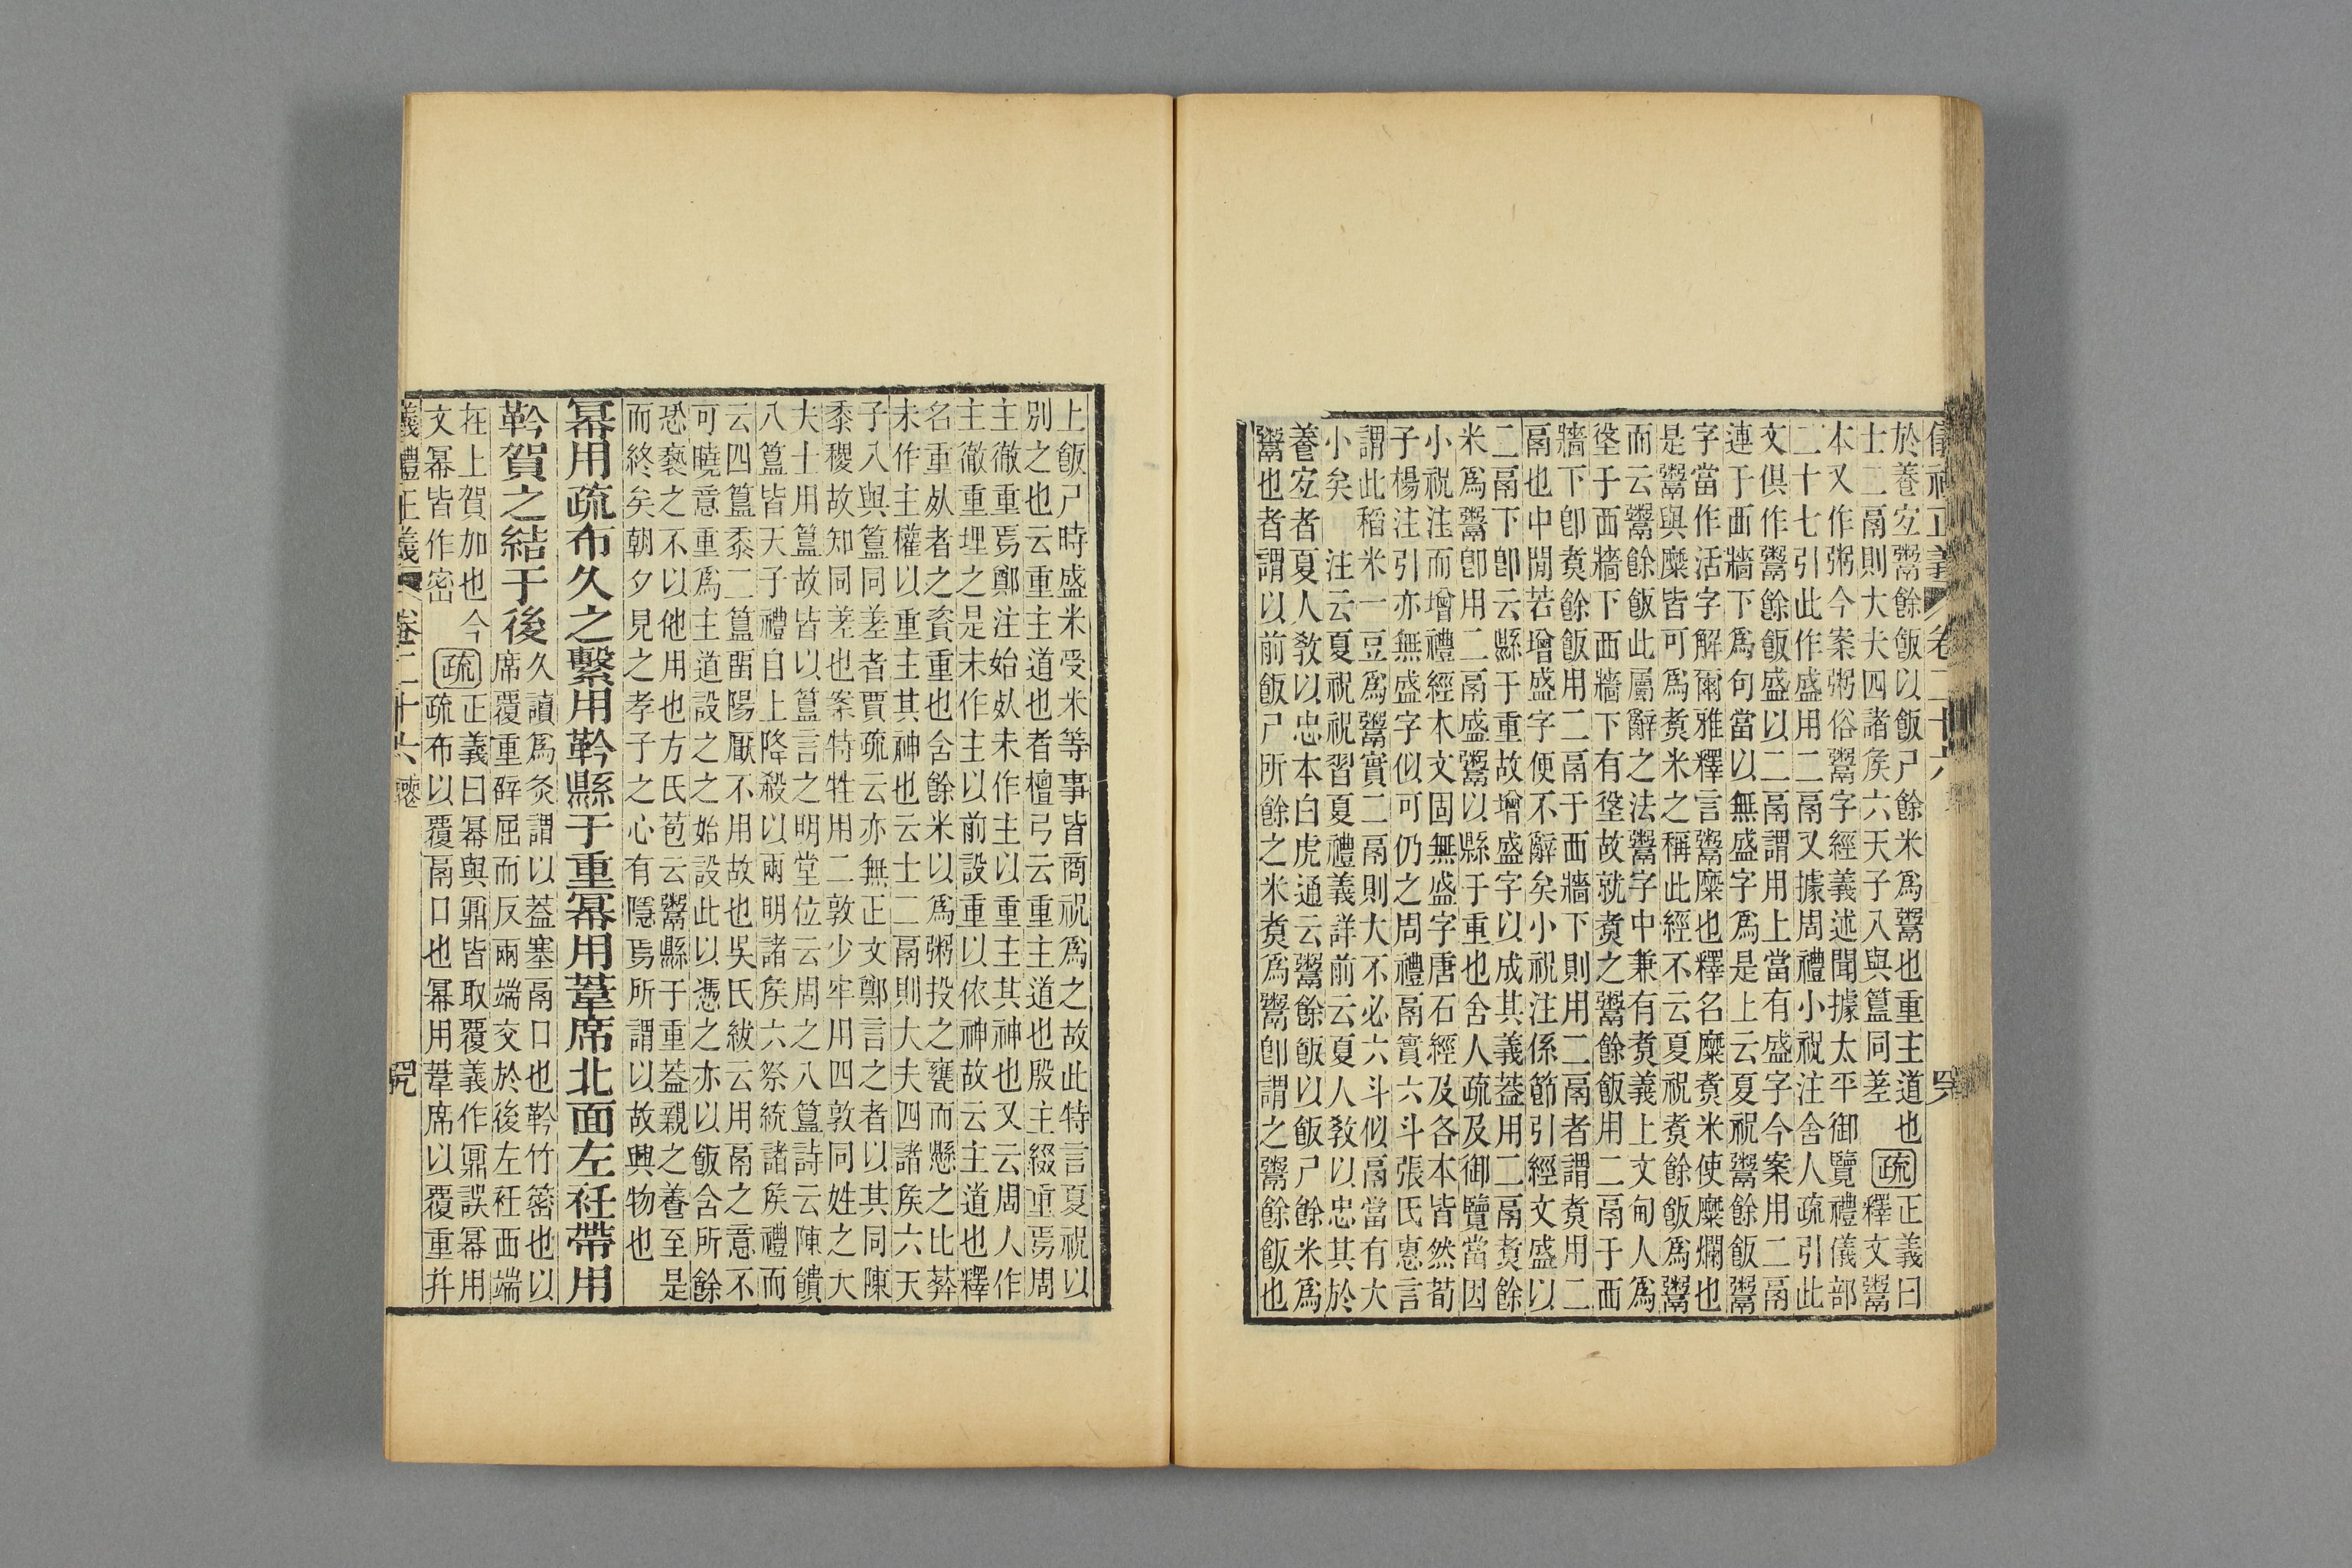 於養宐鬻餘飯以飯尸餘米爲鬻也重主道也 疏 正義曰
士二鬲則大夫四諸矦六天子八與簋同差 釋文鬻
本又作粥今案粥俗鬻字經義述聞據太平御覽禮儀部
二十七引此作盛用二鬲又據周禮小祝注舍人疏引此
文俱作鬻餘飯盛以二鬲謂用上當有盛字今案用二鬲
連于西牆下爲句當以無盛字爲是上云夏祝鬻餘飯鬻
字當作活字解爾雅釋言鬻糜也釋名糜煑米使糜爛也
是鬻與糜皆可爲煑米之稱此經不云夏祝煑餘飯爲鬻
而云鬻餘飯此屬辭之法鬻字中兼有煑義上文甸人爲
垼于西牆下西牆下有垼故就煑之鬻餘飯用二鬲于西
牆下卽煑餘飯用二鬲于西牆下則用二鬲者謂煑用二
鬲也中閒若增盛字便不辭矣小祝注係節引經文盛以
二鬲下卽云縣于重故增盛字以成其義葢用二鬲煑餘
米爲鬻卽用二鬲盛鬻以縣于重也舍人疏及御覽當因
小祝注而增禮經本文固無盛字唐石經及各本皆然荀
子楊注引亦無盛字似可仍之周禮鬲實六斗張氏惠言
謂此稻米一豆爲鬻實二鬲則大不必六斗似鬲當有大
小矣 注云夏祝祝習夏禮義詳前云夏人敎以忠其於
養宐者夏人敎以忠本白虎通云鬻餘飯以飯尸餘米爲
鬻也者謂以前飯尸所餘之米煑爲鬻卽謂之鬻餘飯也
上飯尸時盛米受米等事皆商祝爲之故此特言夏祝以
別之也云重主道也者檀弓云重主道也殷主綴重焉周
主徹重焉鄭注始死未作主以重主其神也又云周人作
主徹重埋之是未作主以前設重以依神故云主道也釋
名重死者之資重也含餘米以爲粥投之甕而懸之比葬
未作主權以重主其神也云士二鬲則大夫四諸矦六天
子八與簋同差者賈疏云亦無正文鄭言之者以其同陳
黍稷故知同差也案特牲用二敦少牢用四敦同姓之大
夫士用簋故皆以簋言之明堂位云周之八簋詩云陳饋
八簋皆天子禮自上降殺以兩明諸矦六祭統諸矦禮而
云四簋黍二簋畱陽厭不用故也吳氏紱云用鬲之意不
可曉意重爲主道設之之始設此以憑之亦以飯含所餘
恐褻之不以他用也方氏苞云鬻縣于重葢親之養至是
而終矣朝夕見之孝子之心有隱焉所謂以故興物也
冪用疏布久之繫用靲縣于重冪用葦席北面左衽帶用
靲賀之結于後 久讀爲灸謂以葢塞鬲口也靲竹䈼也以
席覆重辟屈而反兩端交於後左衽西端
在上賀加也今 疏 正義曰冪與鼏皆取覆義作鼏誤冪用
文冪皆作密 疏布以覆鬲口也冪用葦席以覆重幷